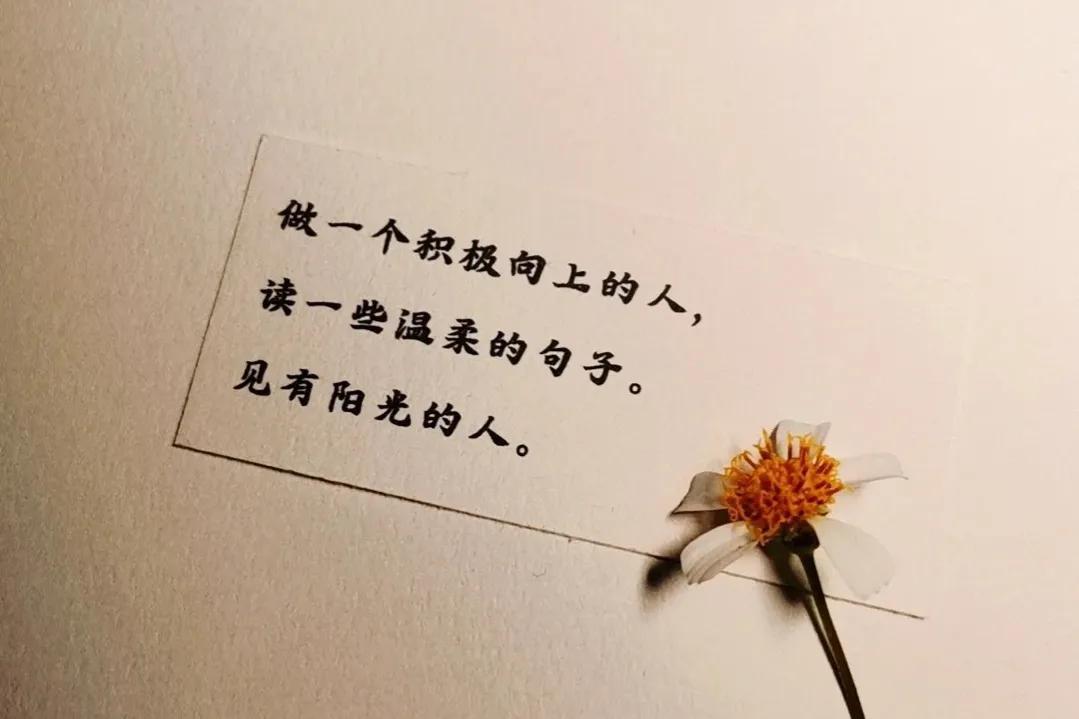 做一个积极向上的人，
读一些温柔的句子。
见有阳光的人。